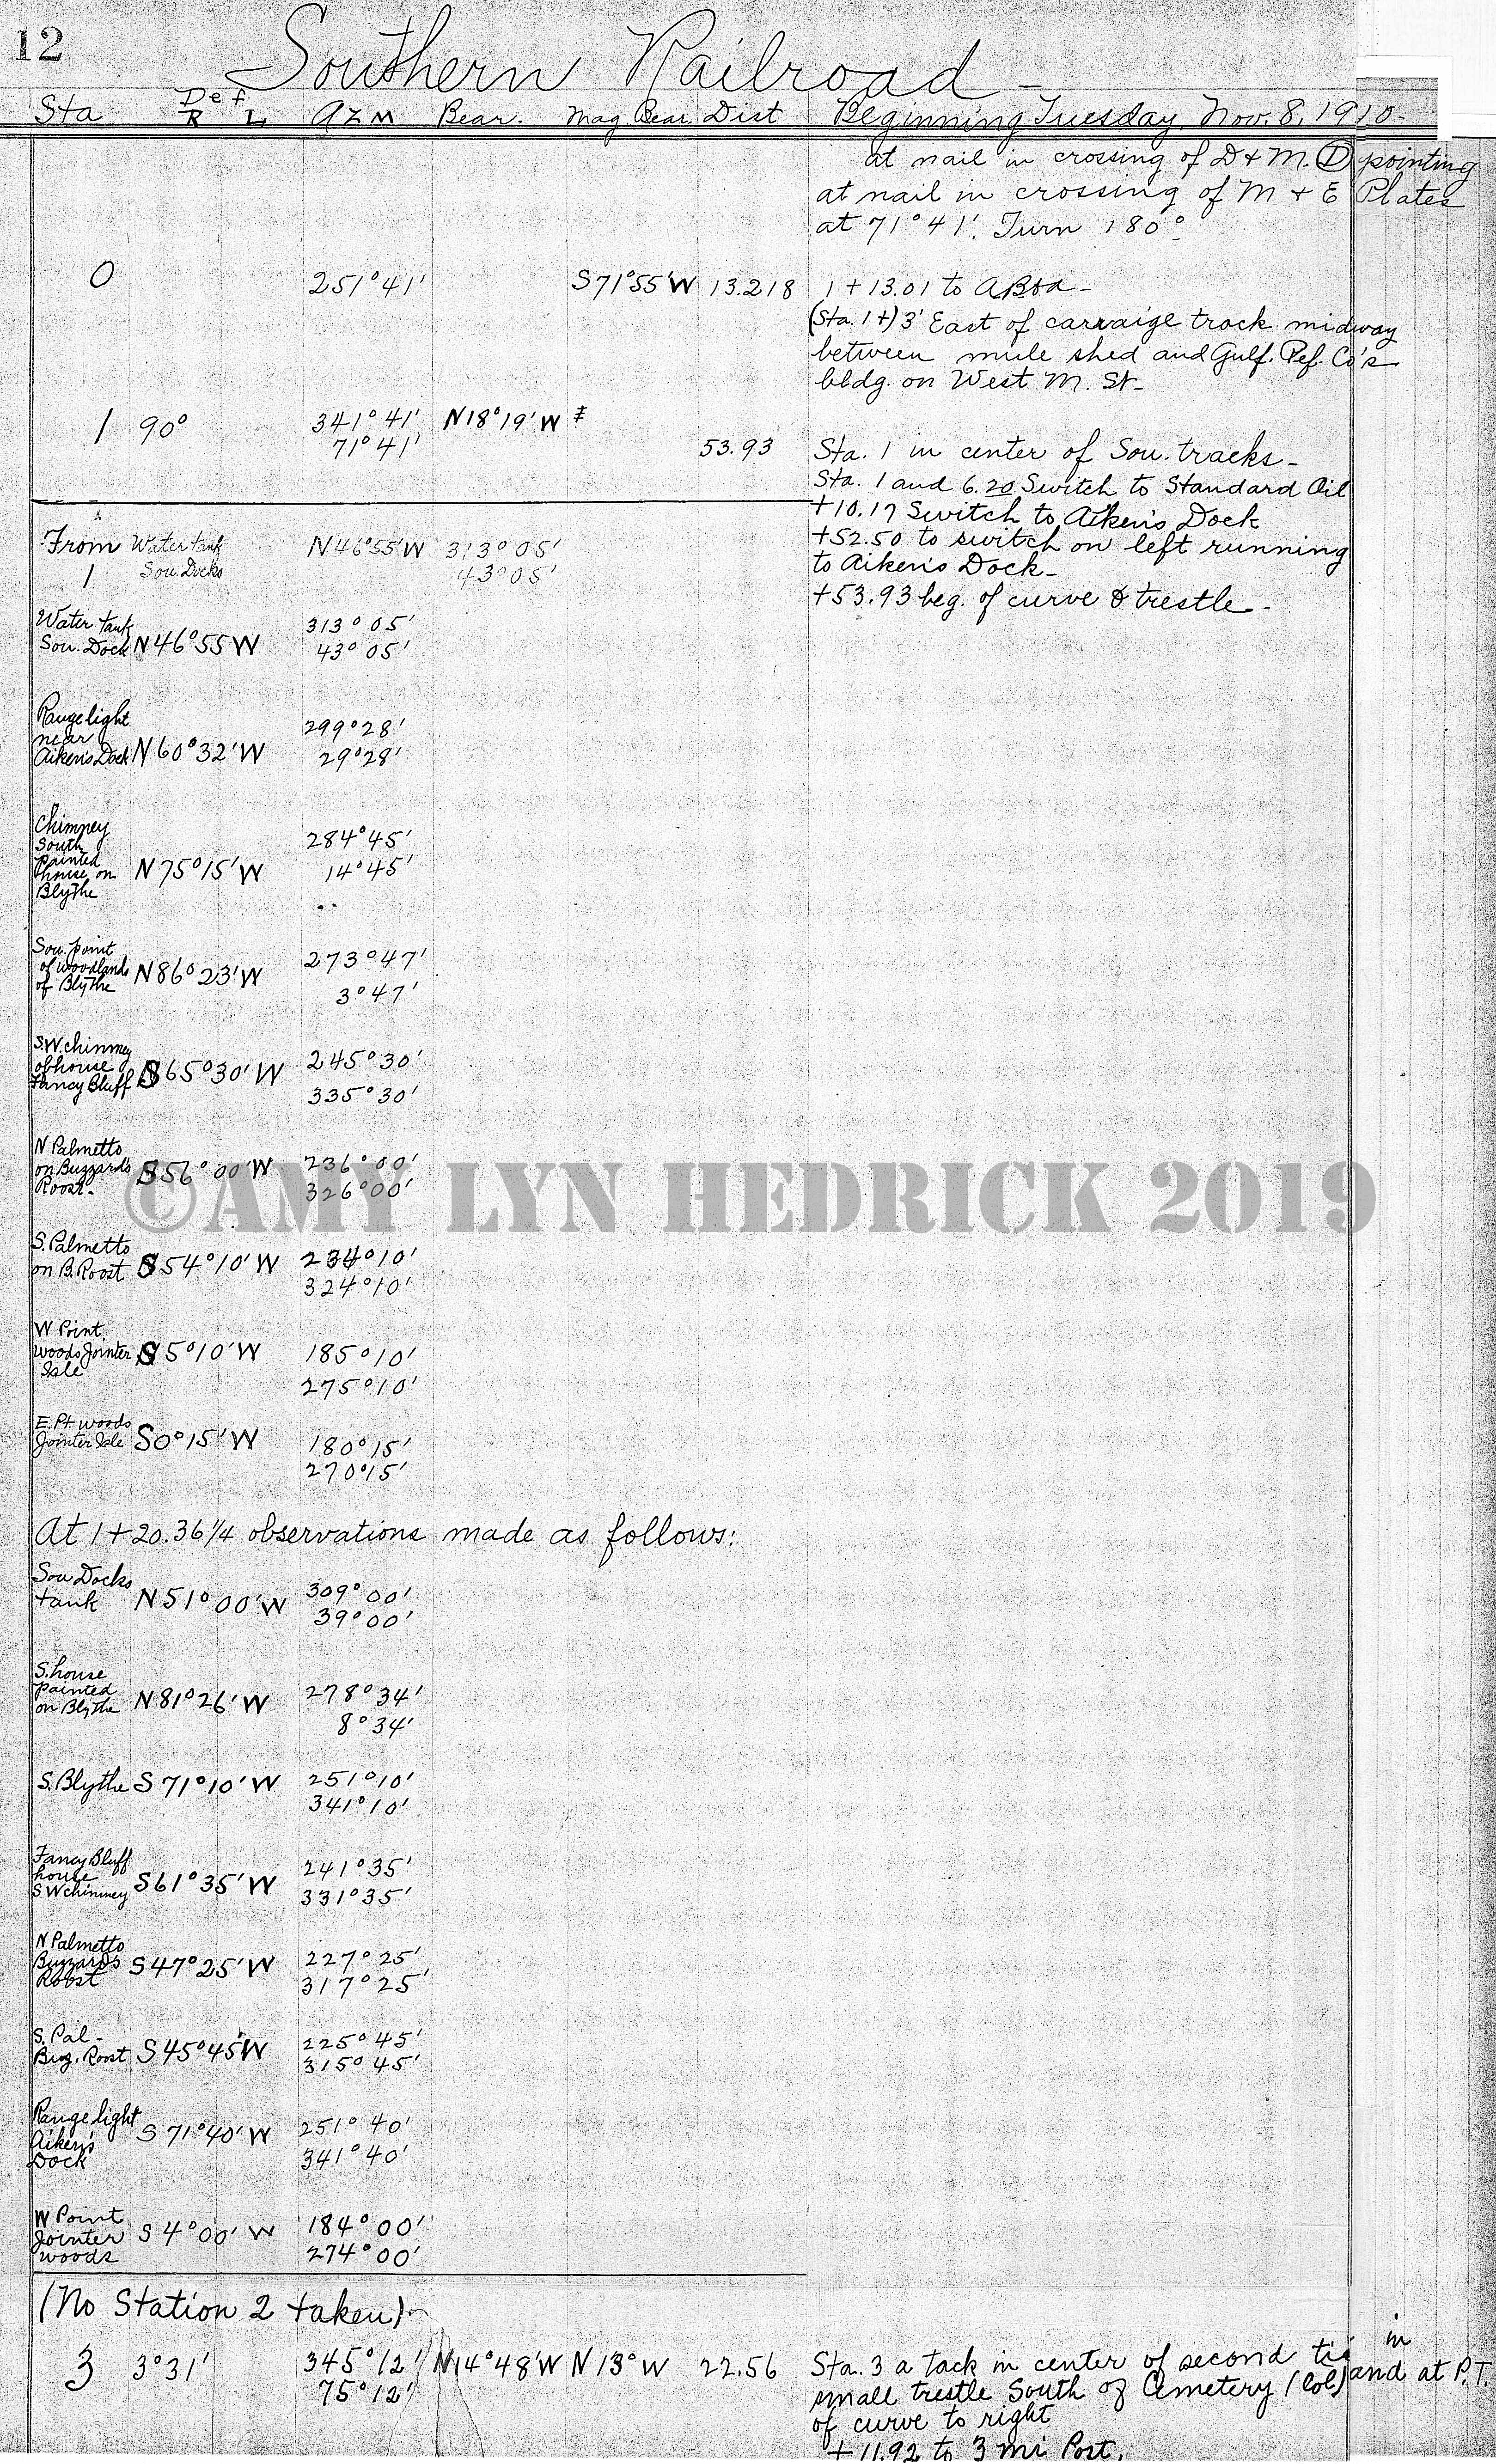 12
Southern Railroad -
Sta Def R L AZM Bear. Mag. Bear. Dist Beginning Tuesday, Nov. 8, 1910-
at nail in crossing of D & M. D pointing
at nail in crossing of M & E Plates
at 71°41'. Turn 180°-
0 251°41' S71°55'W 13.218 1 + 13.01 to
(Sta. 1+) 3' East of carraige track midway
between mule shed and Gulf. Ref. Co's
bldg. on West M. St-
1 90° 341°41' N18°19'W
71°41' 53.93 Sta. 1 in center of Sou. tracks-
Sta. 1 and 6.20 Switch to Standard Oil
+10.17 Switch to Aiken's Dock
+52.50 to switch on left running
to Aiken's Dock-
+53.93 beg. of curve & trestle-
From Water tank N46°55'W 313°05'
1 Sou. Docks 43°05'
Water tank 313°05'
Sou. Dock N46°55W 43°05'
Range light 299°28'
near
Aiken's Dock N60°32'W 29°28'
Chimney
South 284°45'
painted
house on N75°15'W 14°45'
Blythe
Sou. point 273°47'
of woodlands N86°23'W
of Blythe 3°47'
S.W. chinmey 245°30'
ofhouse S65°30'W
Fancy Bluff 335°30'
N Palmetto
on Buzzard's S56°00'W 236°00'
Roost- 326°00'
©AMY LYN HEDRICK 2019
S. Palmetto 234°10'
on B. Roost S54°10'W 324°10'
W Point
woods Jointer S5°10'W 185°10'
Isle 275°10'
E. Pt. woods
Jointer Isle S0°15'W 180°15'
270°15'
At 1+20.36 1/4 observations made as follows:
Sou Docks 309°00'
tank N51°00'W 39°00'
S. house
painted 278°34'
on Blythe N81°26'W 8°34'
S. Blythe S71°10'W 251°10'
341°10'
Fancy Bluff 241°35'
house S61°35'W
S W chinmey 331°35'
N Palmetto
Buzzard's S47°25'W 227°25'
Roost 317°25'
S. Pal- 225°45'
Buz. Roost S45°45'W 315°45'
Range light 251°40'
Aiken's S71°40'W
Dock 341°40'
W Point 184°00'
Jointer S4°00'W
woods 274°00'
(No Station 2 taken)-
3 3°31' 345°12' N14°48'W N13°W 22.56 Sta. 3 a tack in center of second tie in
75°12' small trestle South of Cemetery (Col) and at P.T.
of curve to right
+ 11.92 to 3 mi Post.